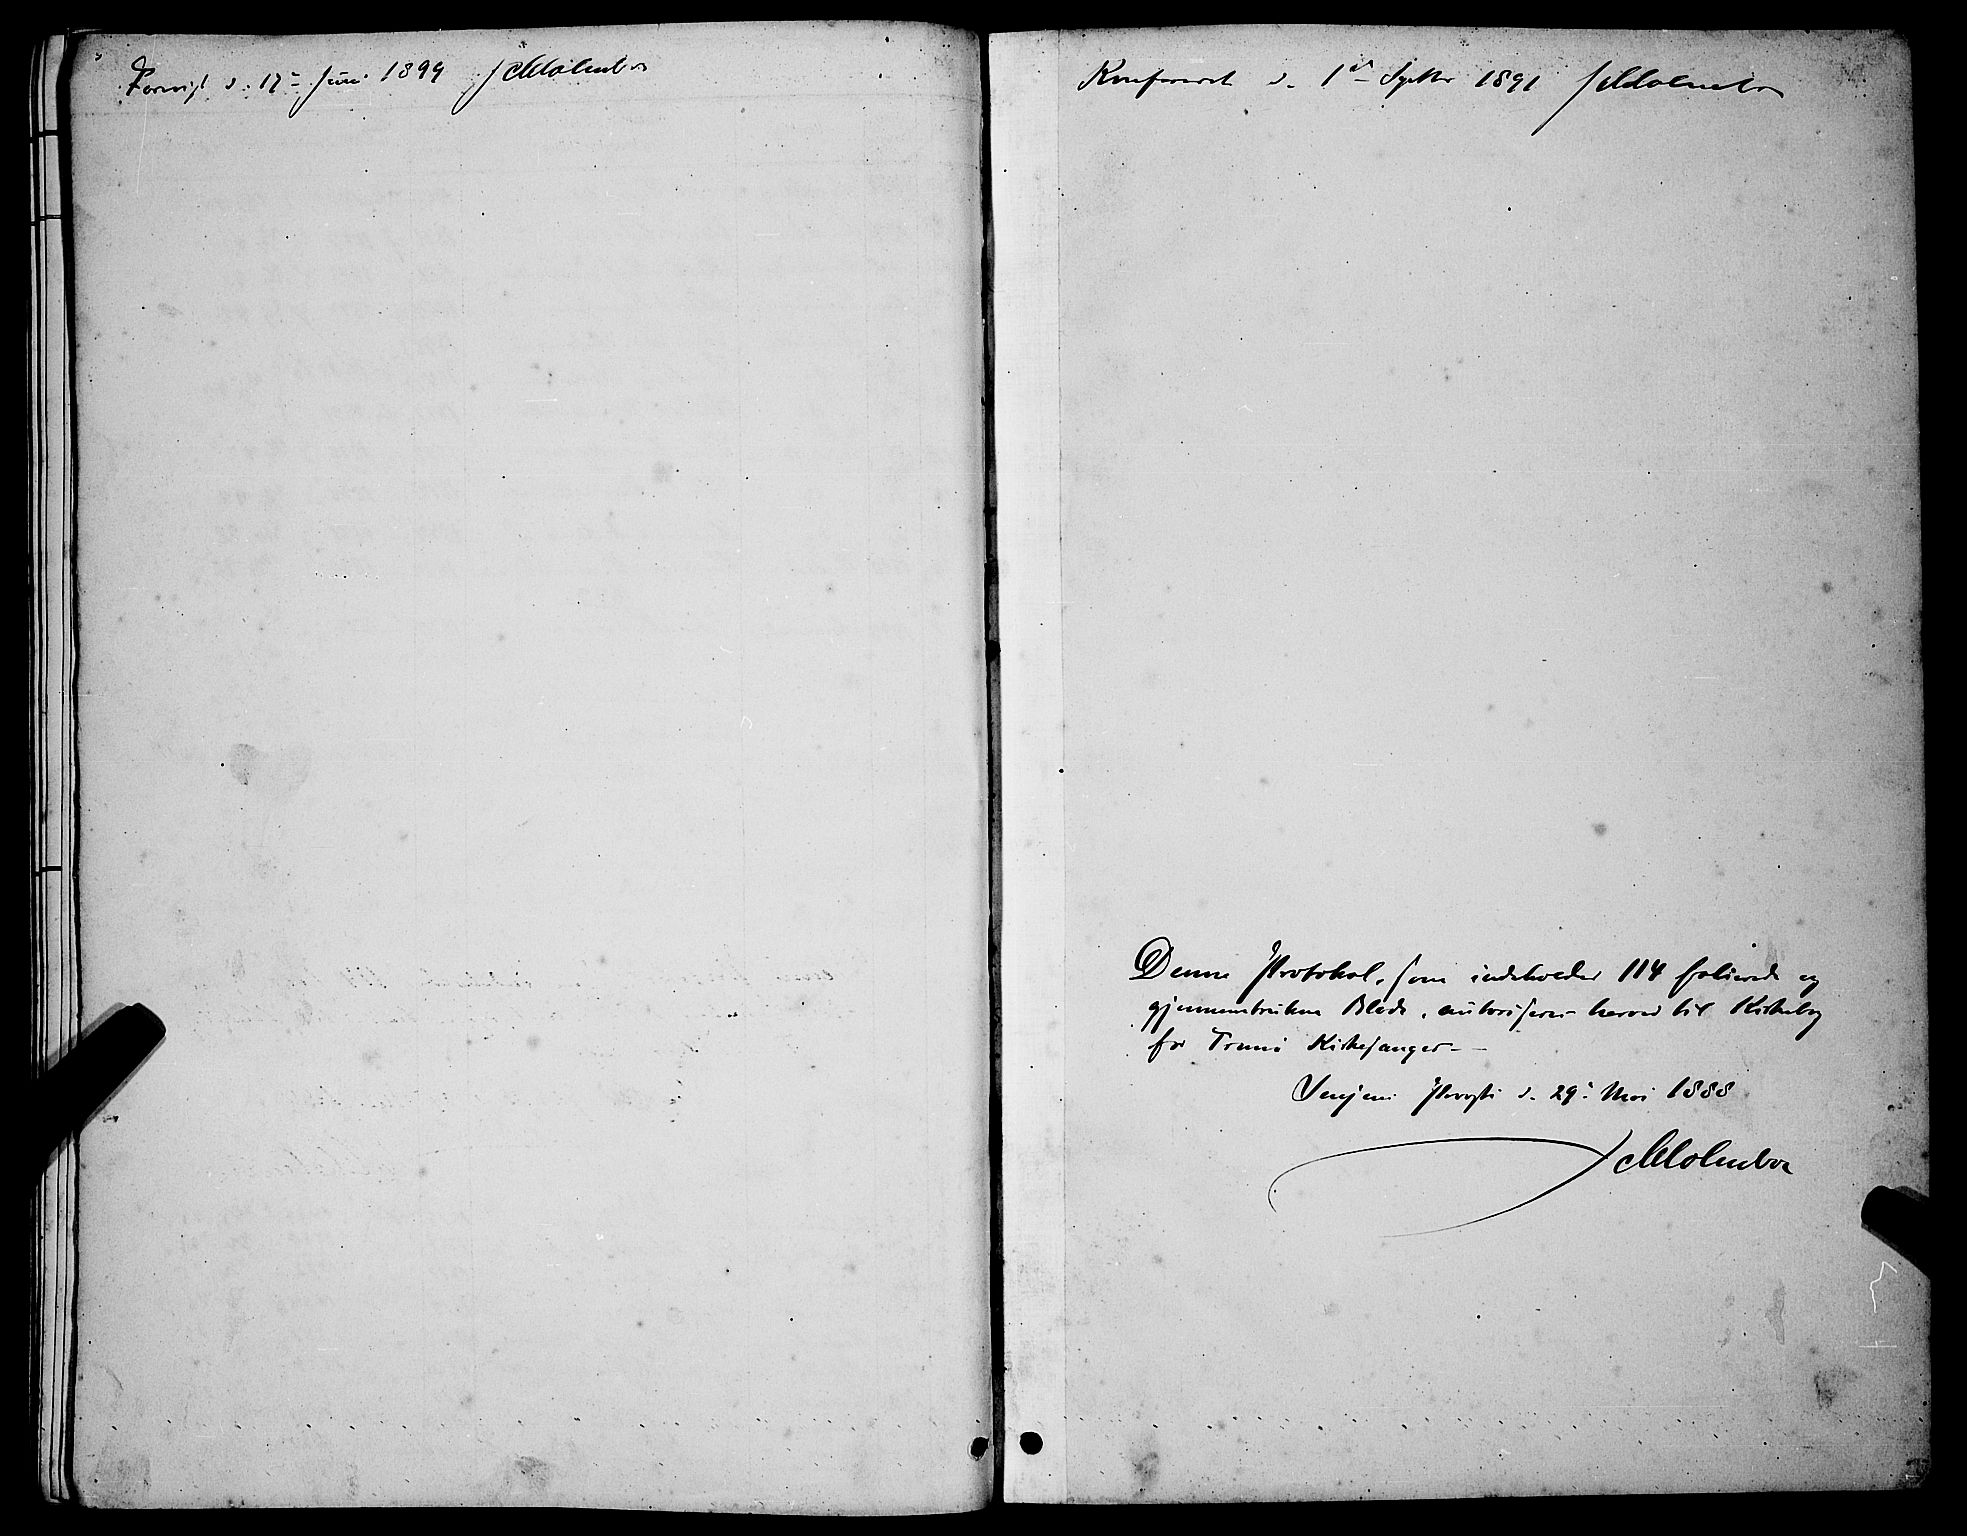 Forevist d. 17de Juni 1899 J Molmboe
Konfereret d. 1ste Septbr 1891 J Molmboe
Denne Protokol, som indeholder 114 folierede og
gjennemtrukne Blade, autoriseres herved til Kirkebog
for Tranø Kirkesanger.
Senjens Provsti d. 29de Mai 1888
J Molmboe